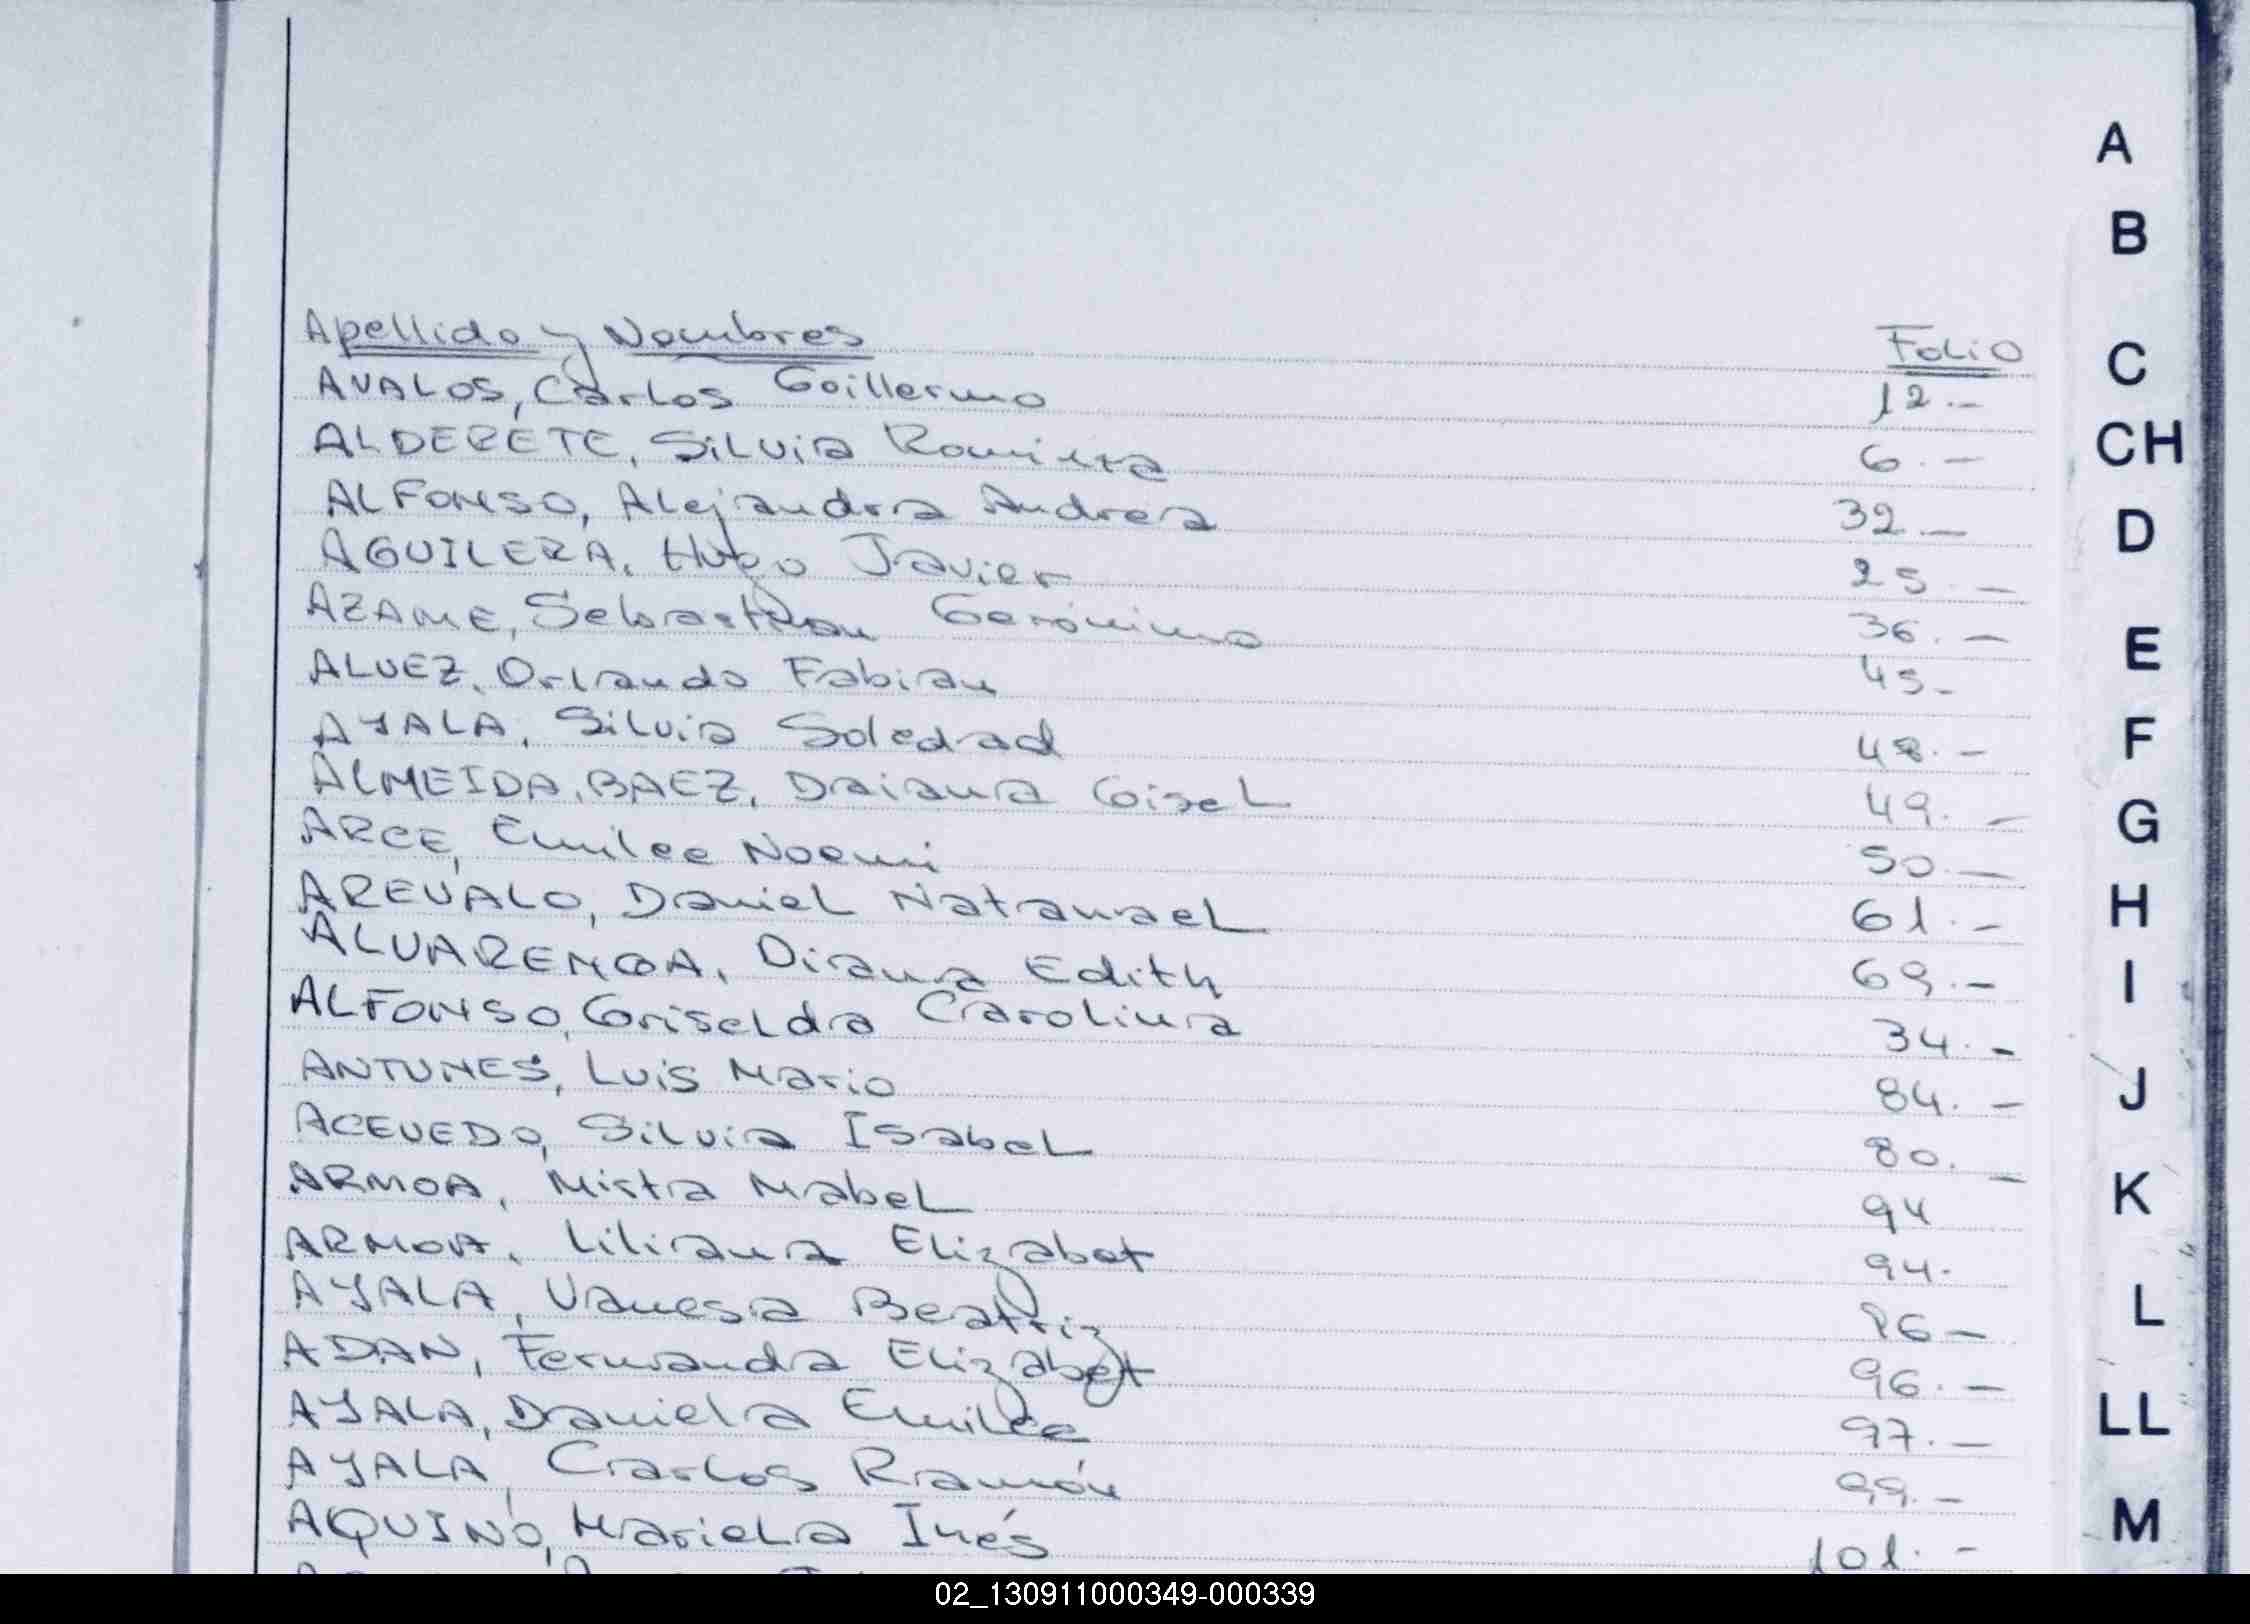 Apellido y Nombres Folio
AVALOS, Carlos Guillermo 12.-
ALDERETE, Silvia Romina 6.-
ALFONSO, Alejandra Andrea 32.-
AGUILERA, Hugo Javier 25.-
AZAME, Sebastian Gerónimo 36.-
ALVEZ, Orlando Fabian 45-
AYALA, Silvia Soledad 48.-
ALMEIDA, BAEZ, Daiana Gisel 49.-
ARCE, Emilce Noemi 50.-
AREVALO, Daniel Natanael 61.-
ALVARENGA, Diana Edith 69.-
ALFONSO, Griselda Carolina 34.-
ANTUNES, Luis Mario 84.-
ACEVEDO, Silvia Isabel 80.-
ARMOA, Mirta Mabel 94
ARMOA, Liliana Elizabet 94.
AYALA, Vanesa Beatriz 96-
ADAN, Fernanda Elizabet 96.-
AYALA, Daniela Emilce 97.-
AYALA, Carlos Ramón 99.-
AQUINO, Mariela Inés 101.-
A
B
C
CH
D
E
F
G
H
I
J
K
L
LL
M
02_130911000349-000339